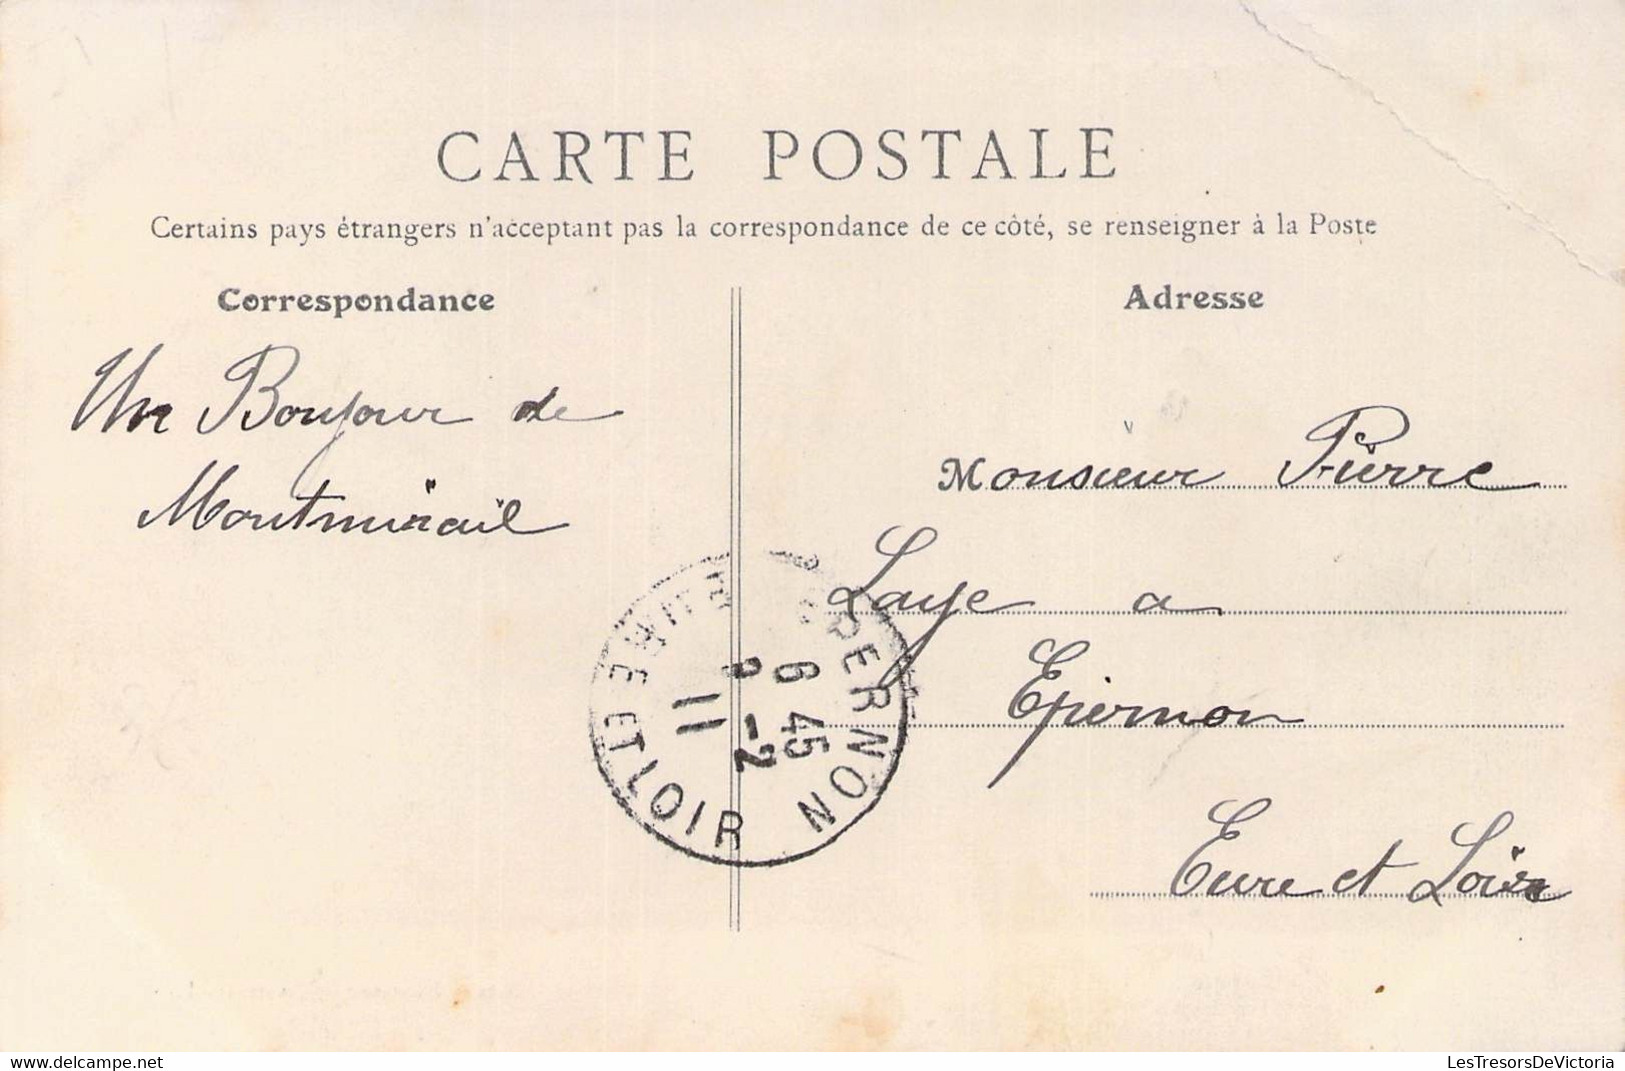 CARTE POSTALE
Certains pays étrangers n'acceptant pas la correspondance de ce côté, se renseigner à la Poste
Correspondance
Un Bonjour de
Montmirail
Adresse
Monsieur Pierre
Laye a
Epernon
Eure et Loire
EPERNON
6 45
9 -2
11
EURE ET LOIR
LesTresorsDeVictoria